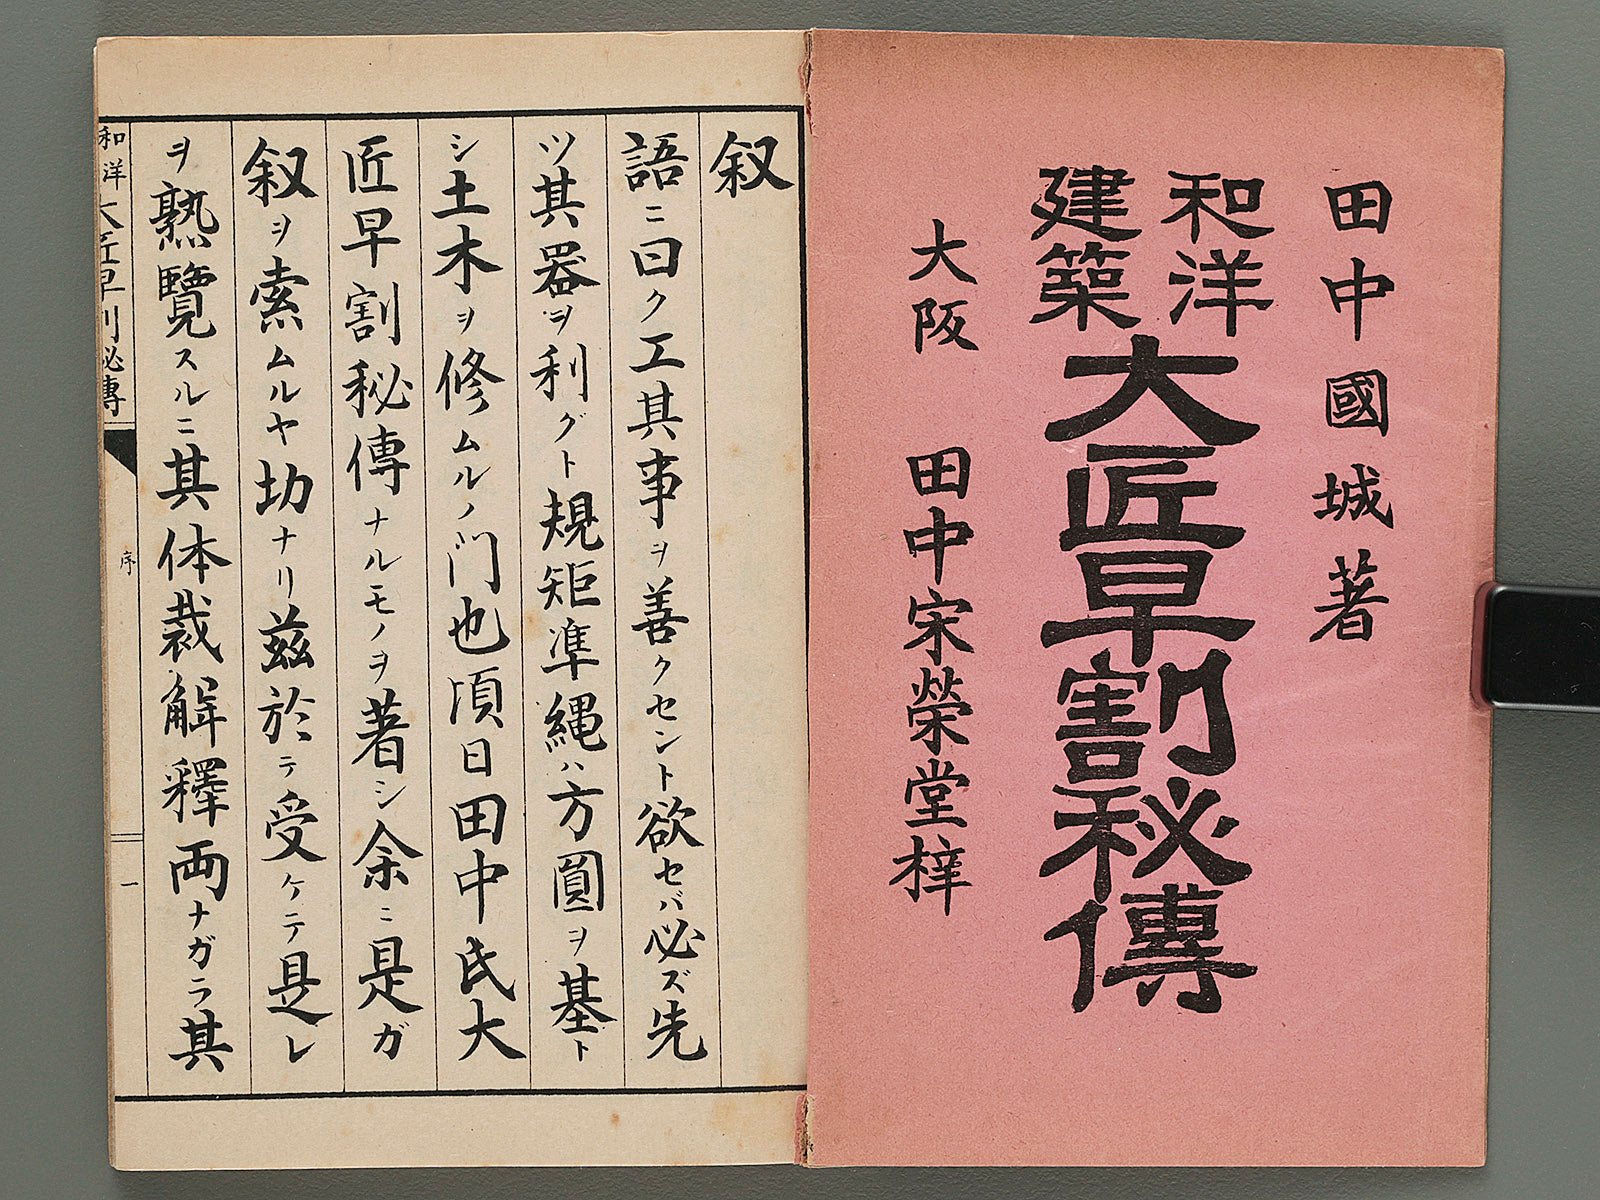 田中國城著
和洋
建築
大匠早割秘傳
大阪 田中宋榮堂梓
叙
語ニ曰ク工其事ヲ善クセント欲セバ必ズ先
ツ其器ヲ利グト規矩準縄ハ方圓ヲ基ト
シ土木ヲ修ムルノ門也頃日田中氏大
匠早割秘傳ナルモノヲ著シ余ニ是ガ
叙ヲ索ムルヤ切ナリ茲於テ受ケテ是レ
ヲ熟覽スルニ其体裁解釋両ナガラ其
和洋大匠早割秘傳
序
一